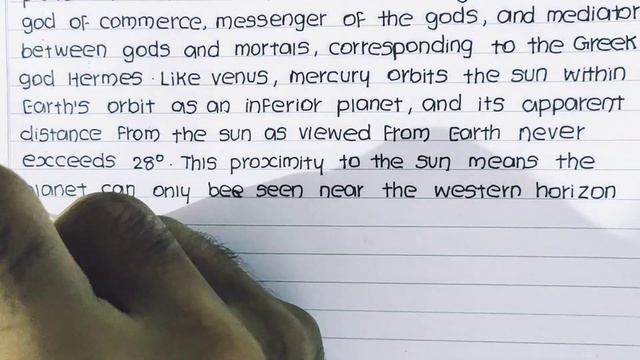 god of commerce, messenger of the gods, and mediator
between gods and mortals, corresponding to the Greek
god Hermes. Like venus, mercury orbits the sun within
Earth's orbit as an inferior planet, and its apparent
distance from the sun as viewed from Earth never
exceeds 28°. This proximity to the sun means the
can only bee seen near the western horizon